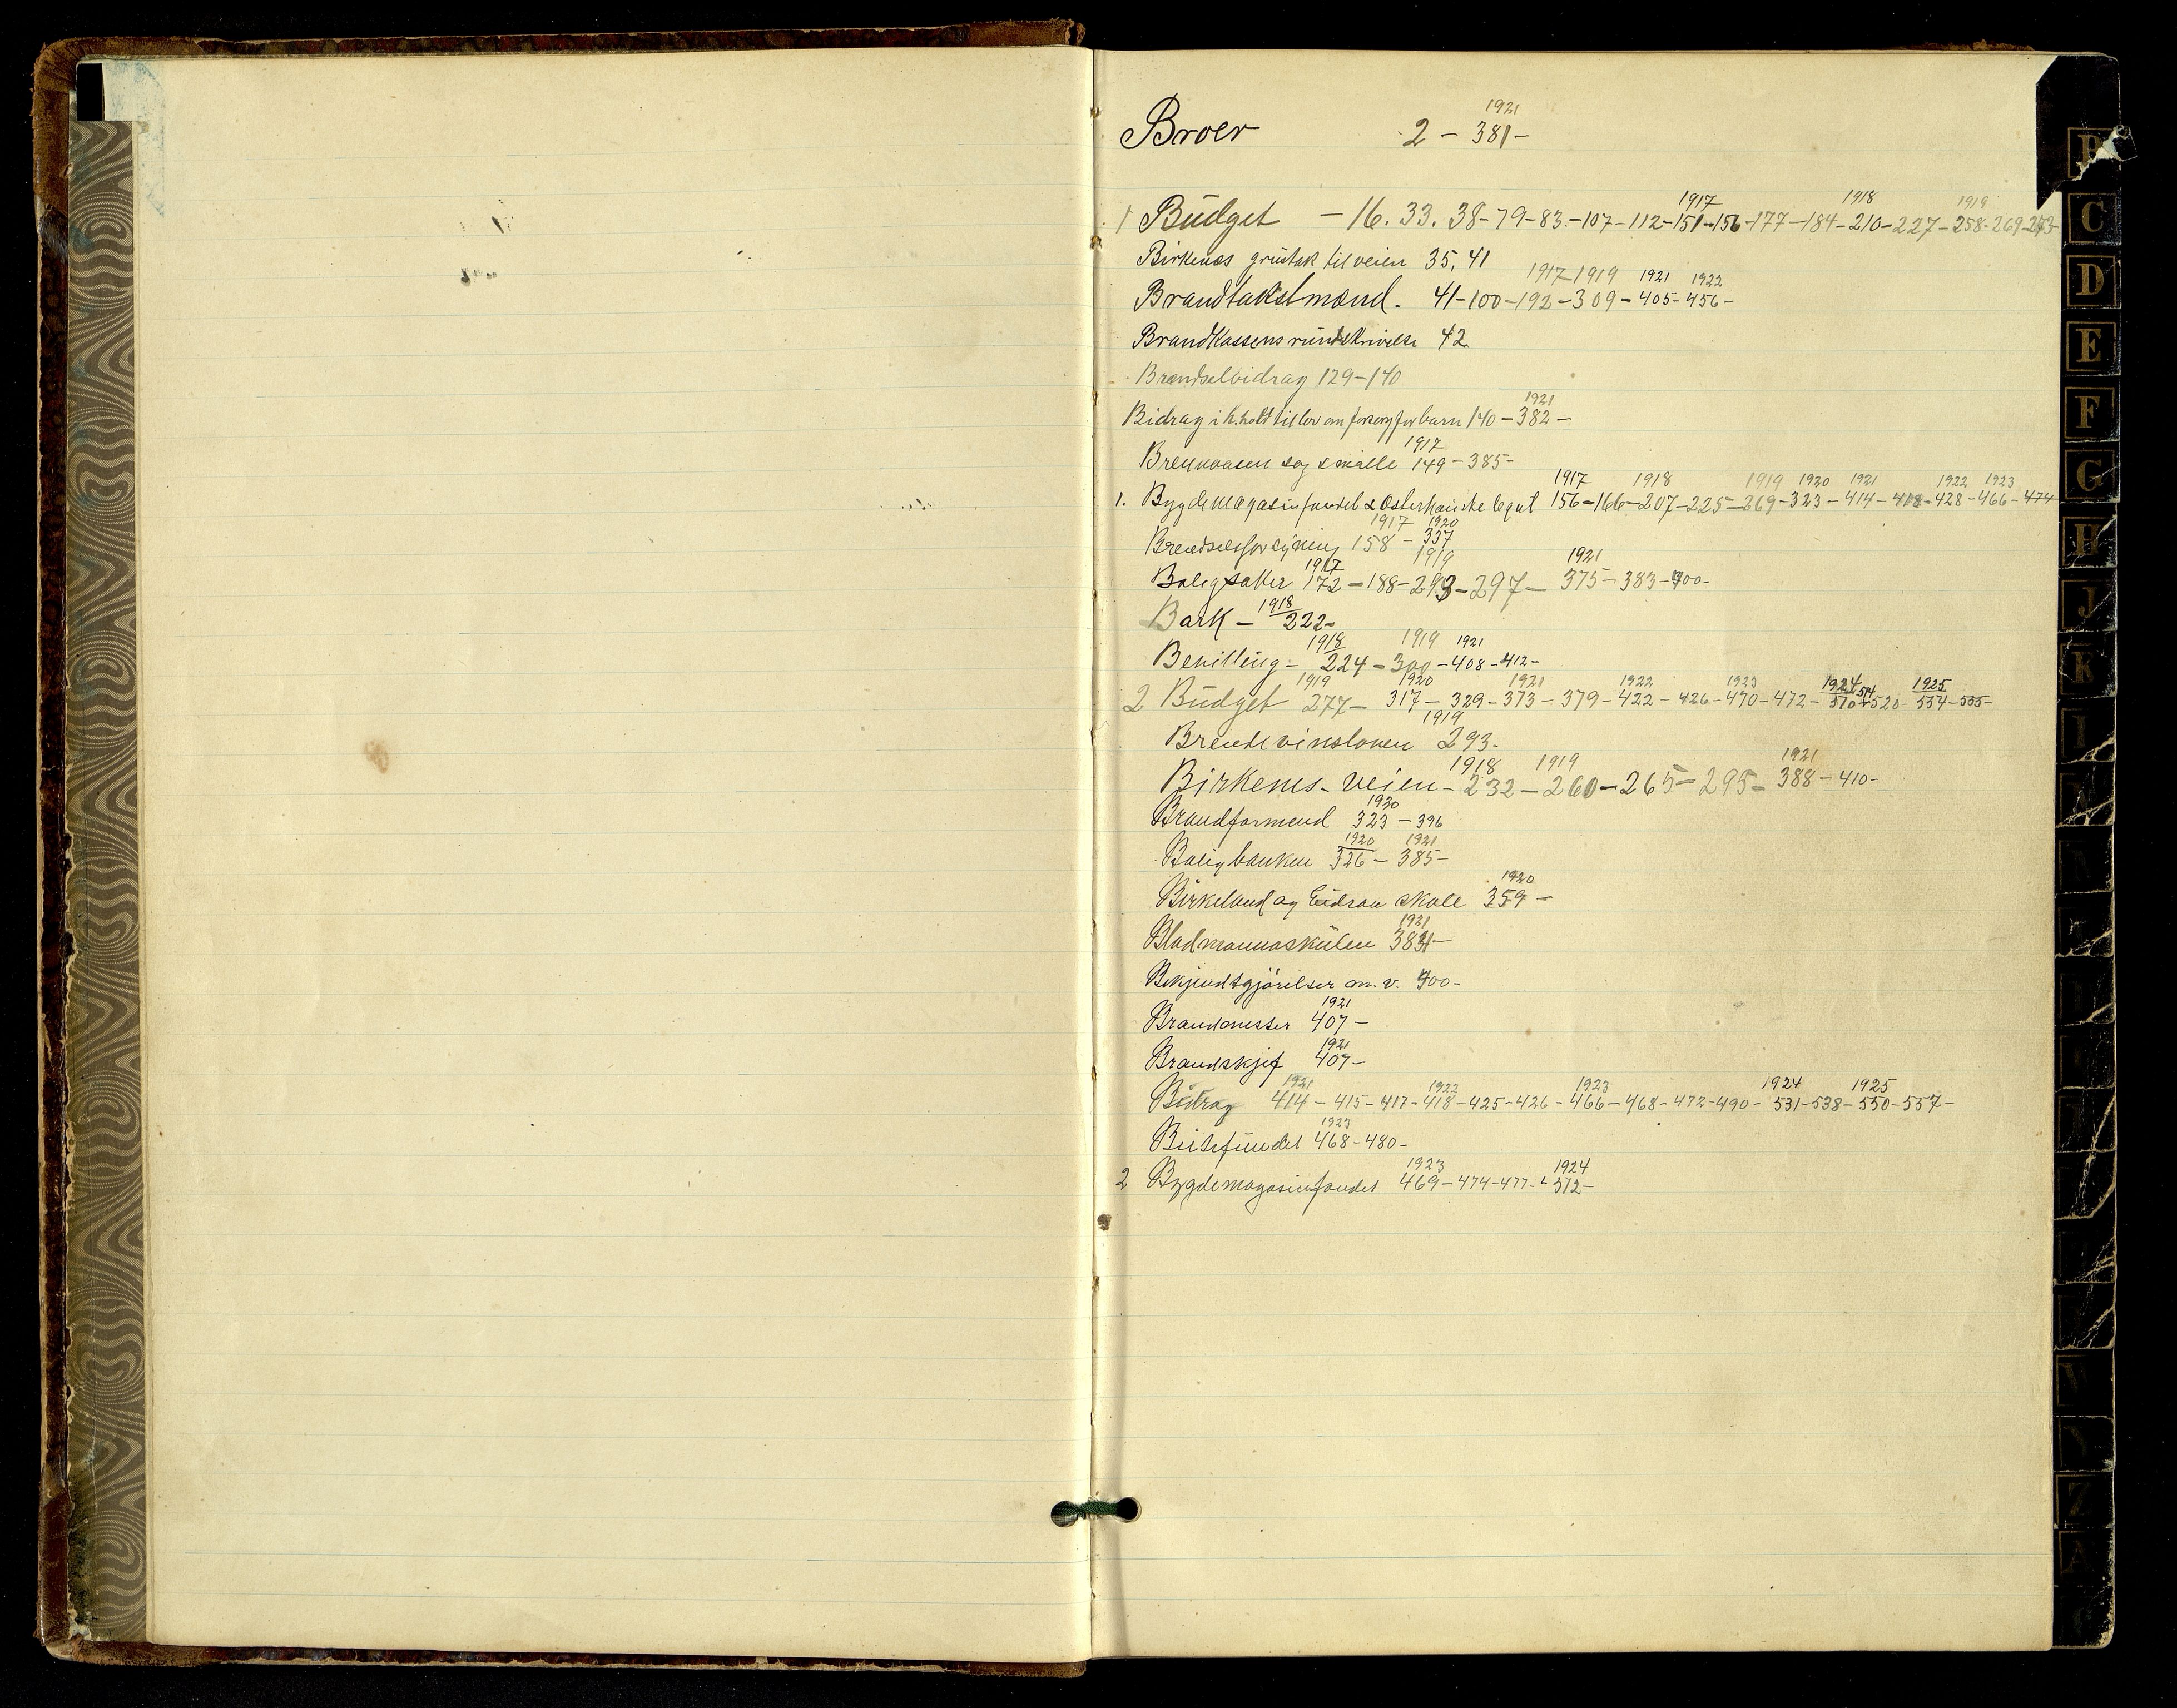 1921
Broer 2 - 381 -
1917 1918 1919
1 Budget - 16. 33. 38 - 79 - 83 - 107 - 112 - 151 - 156 - 177 - 184 - 210 - 227 - 258 - 269 - 273 -
Birkenes grustak til veien 35, 41
1917 1919 1921 1922
Brandtakstmænd. 41 - 100 - 192 - 309 - 405 - 456 -
Brandkassens rundskrivelse 42
Brændselbidrag 129 - 140
1921
Bidrag i h.hold til lov om forsorg for barn 140 - 382 -
1917
Brennaasen og smaale 149 - 385 -
1917 1918 1919 1920 1921 1922 1923
1. Bygdemagasinfondet & Østerhauske legat 156 - 166 - 207 - 225 - 269 - 323 - 414 - 418 - 428 - 466 - 474
1917 1920
Brendselsforsyning 158 - 337
1917 1919 1921
Boligsaker 172 - 188 - 293 - 297 - 375 - 383 - 400 -
1918
Bark - 222 -
1918 1919 1921
Bevilling - 224 - 300 - 408 - 412 -
1919 1920 1921 1922 1923 1924 1925
2 Budget 277 - 317 - 329 - 373 - 379 - 422 - 426 - 470 - 472 - 510 - 514 - 520 - 554 - 555 -
1919
Brendevinsloven 293 -
1918 1919 1921
Birkenes - veien - 232 - 260 - 265 - 295 - 388 - 410 -
1920
Brandformend 323 - 396
1920 1921
Boligbanken 326 - 385 -
1920
Birkeland og skole 359 -
1921
384 -
Bekjendtgjörelser m. v. 400 -
1921
Brandmester 407 -
1921
Brandskjef 407 -
1921 1922 1923 1924 1925
Bidrag 414 - 415 - 417 - 418 - 425 - 426 - 466 - 468 - 472 - 490 - 531 - 538 - 550 - 557 -
1923
468 - 480 -
1923 1924
2 Bygdemagasinfondet 469 - 474 - 477 - 512 -
B
C
D
E
F
G
H
J
K